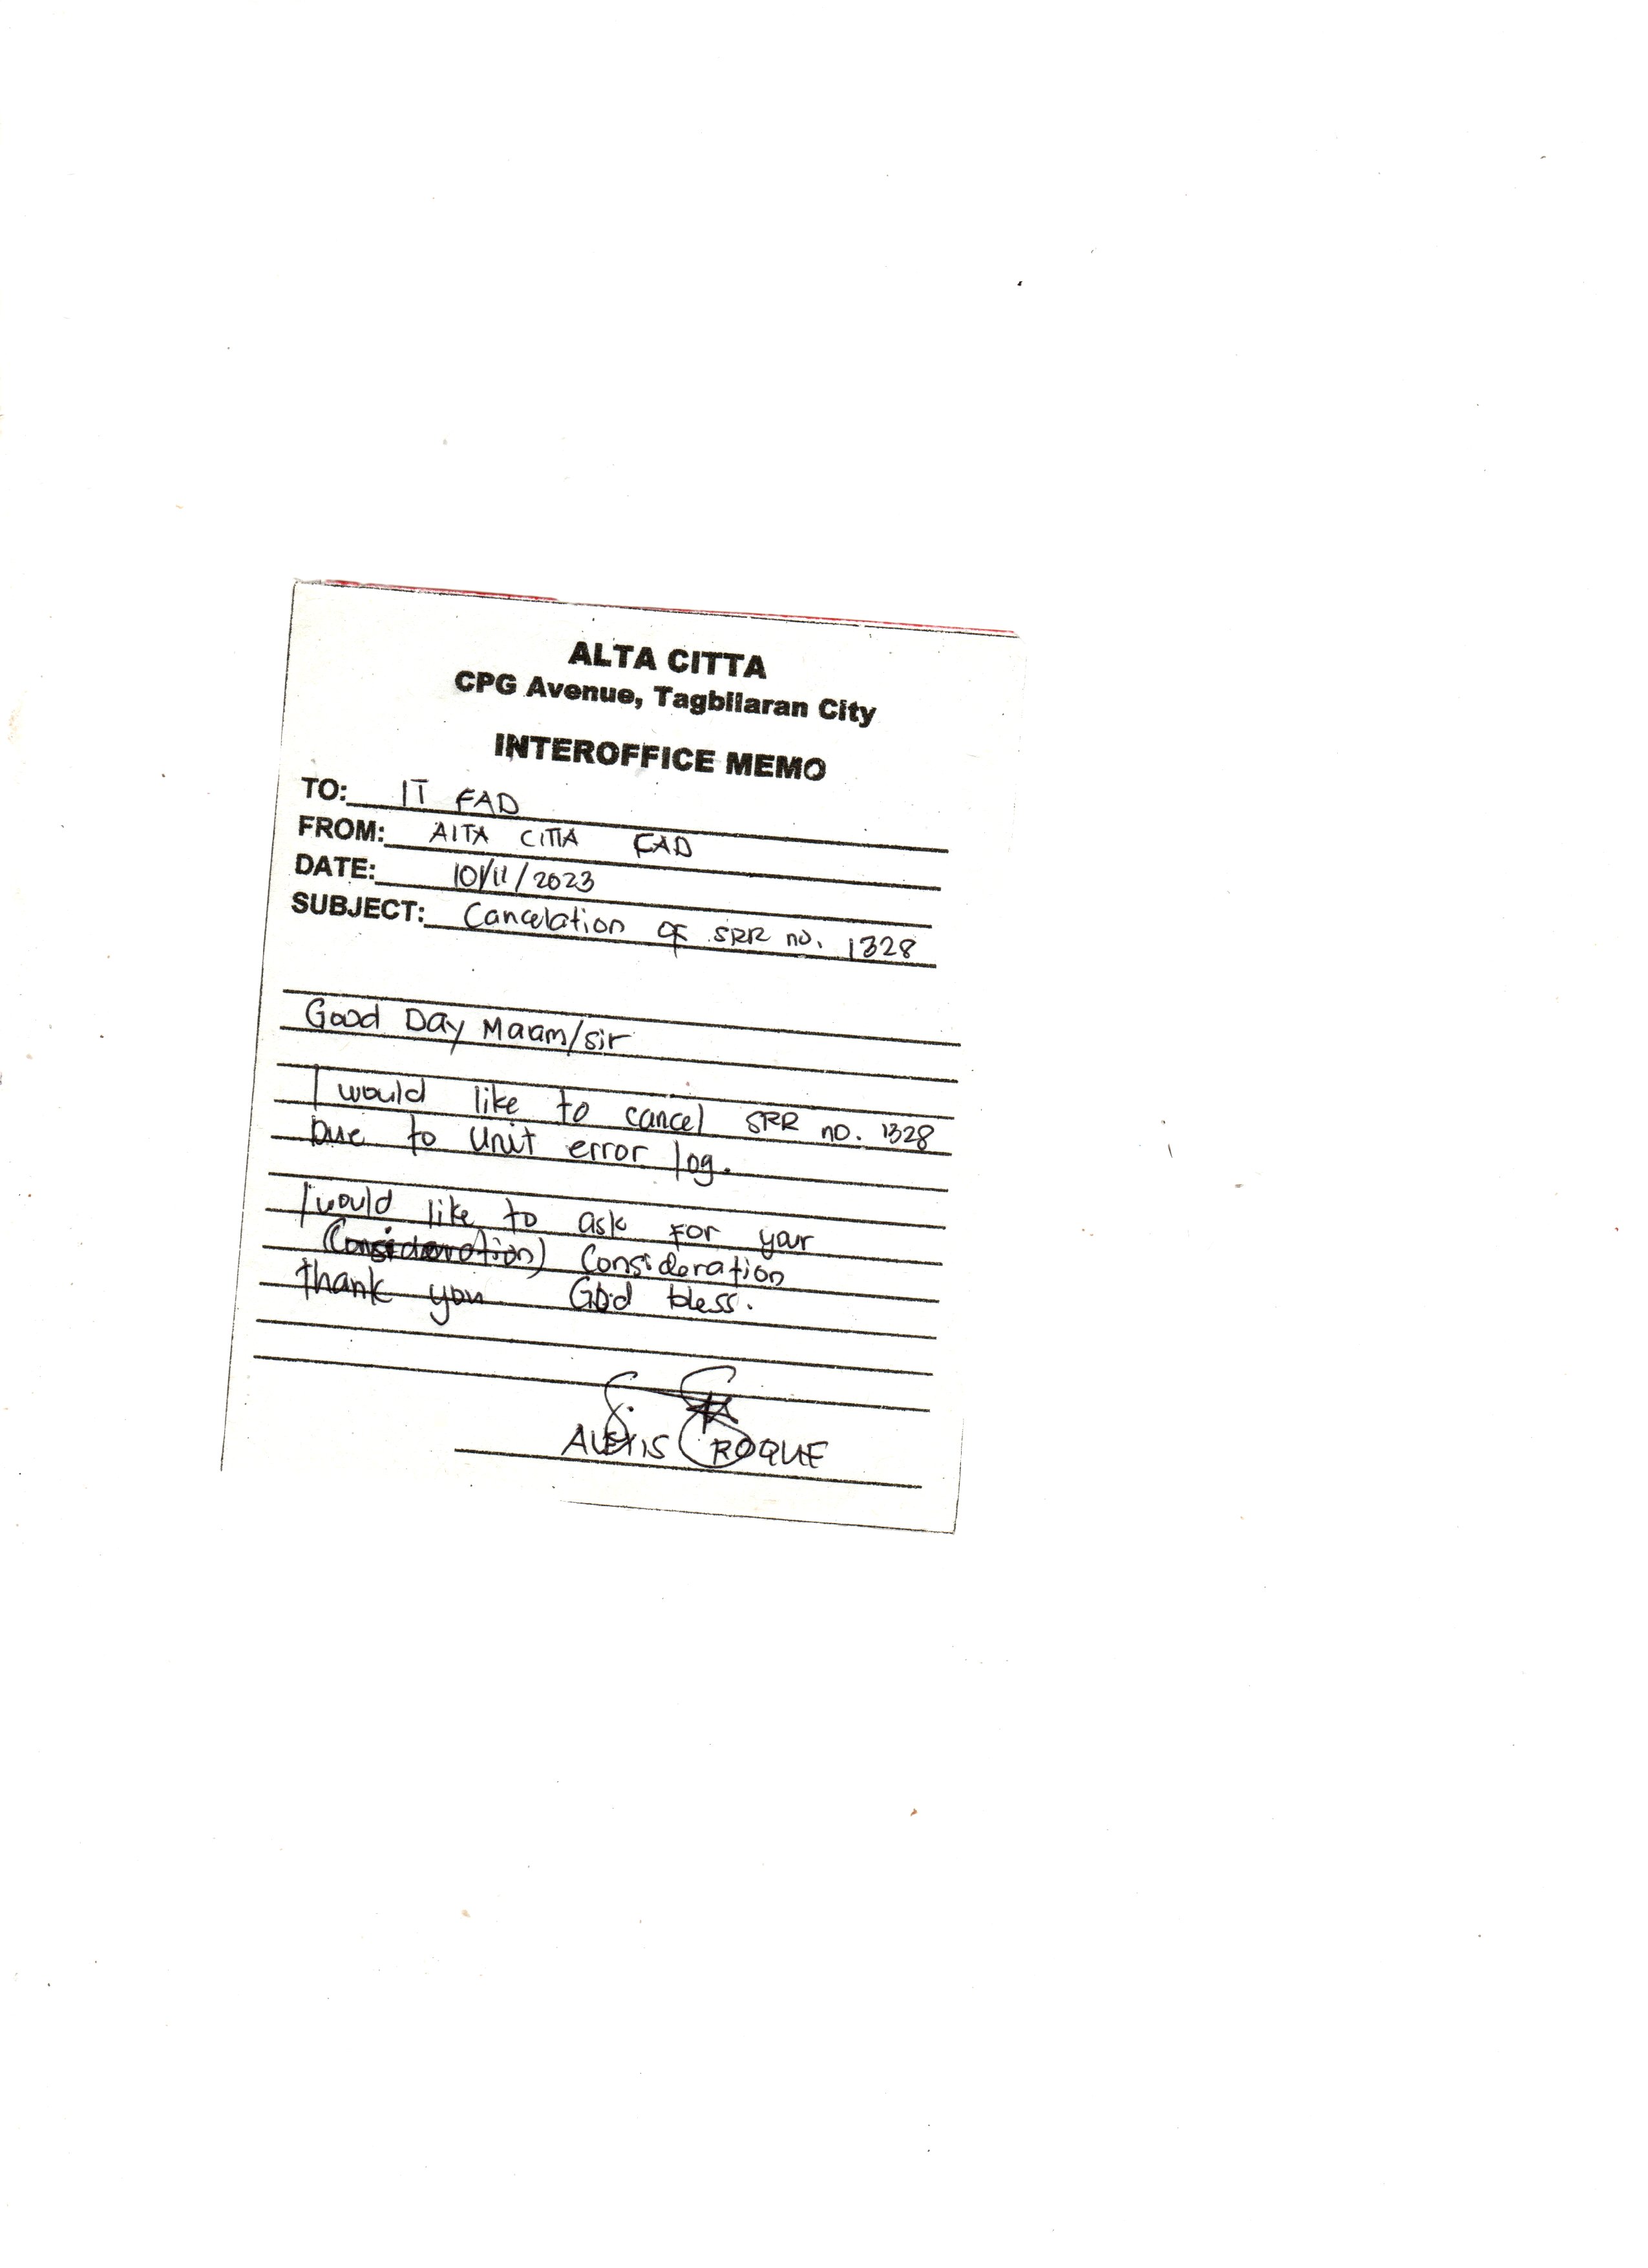 ALTA CITTA
CPG Avenue, Tagbilaran City
INTEROFFICE MEMO
TO: IT FAD
FROM: AlTA CITTA FAD
DATE: 10/11/2023
SUBJECT: Cancelation OF SRR no. 1328
Good Day Maam/sir
I would like to cancel SRR no. 1328
Due to Unit error log.
I would like to ask For your
(Consideration) Consideration
thank you God bless.
ALEXIS ROQUE